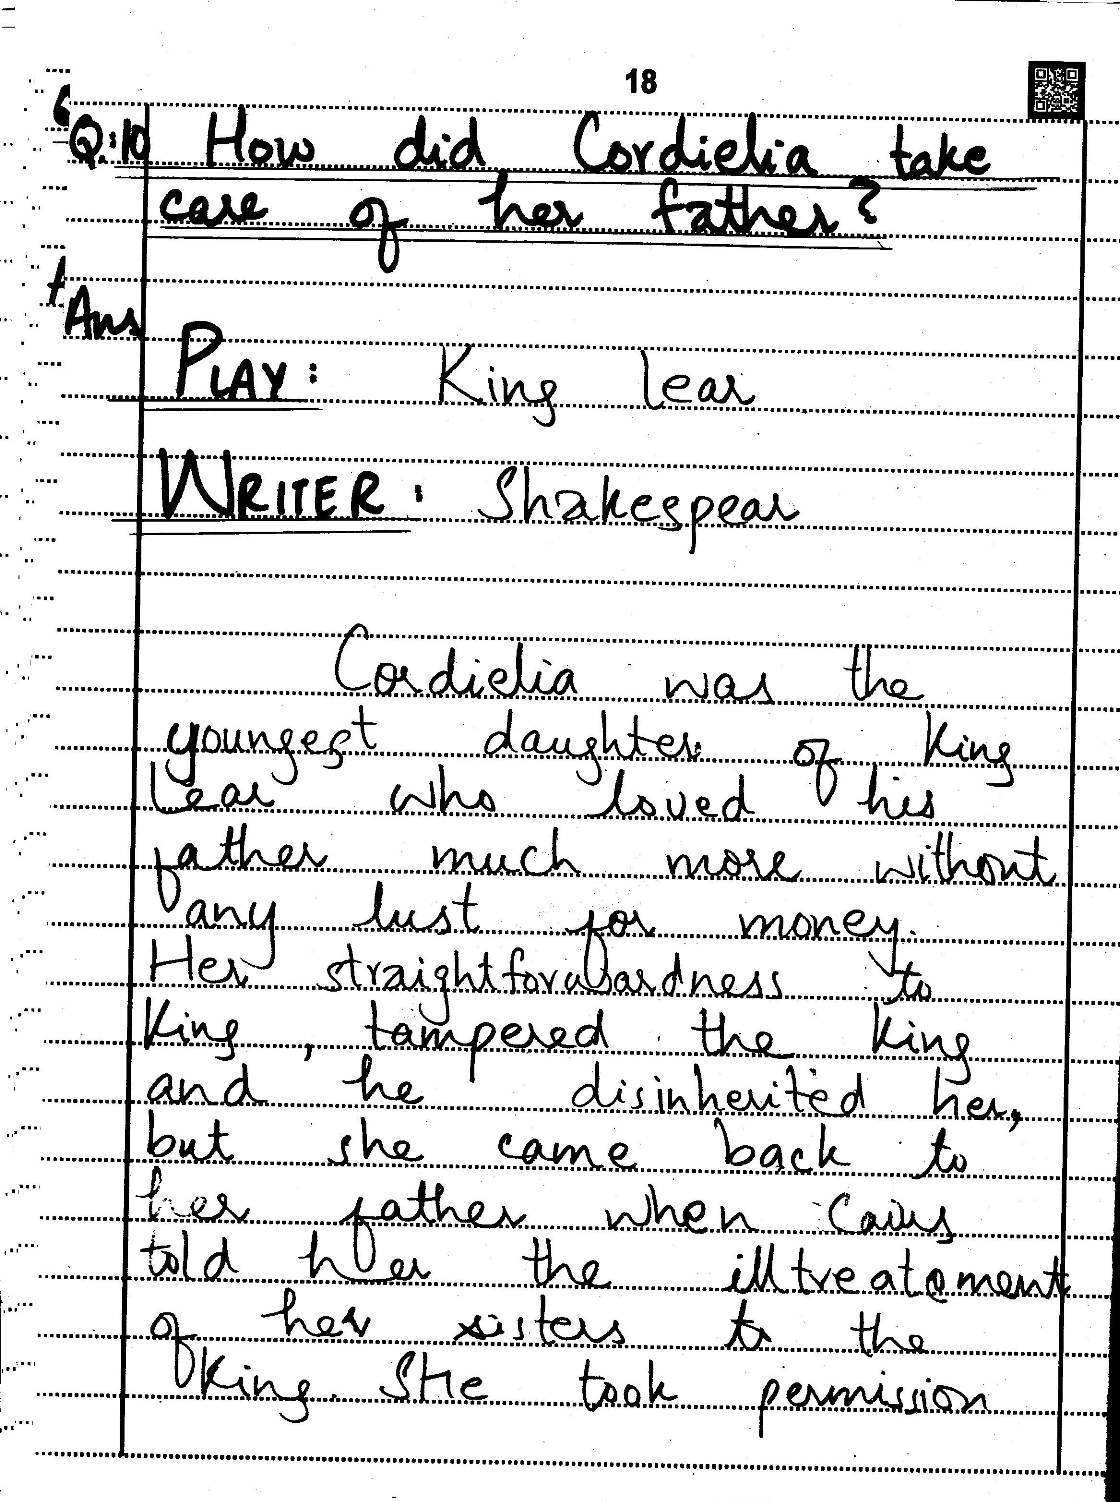 18
Q:10 How did Cordielia take
care of her father?
Ans
PLAY: King lear
WRITER: Shakespear
Cordielia was the
youngest daughter of King
Lear who loved his
father much more without
any lust for money.
Her straightforwardness to
King, tampered the King
and he disinherited her,
but she came back to
her father when Caius
told her the illtreatement
of her sisters to the
King. SHe took permission